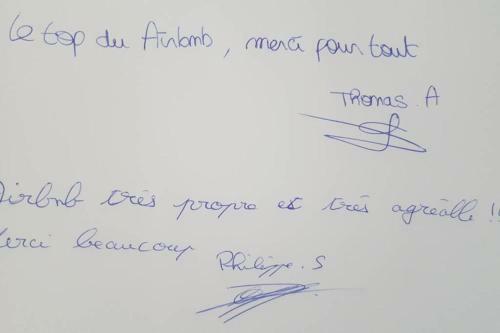 Le top du Airbnb, merci pour tout
Thomas. A
Airbnb très propre et très agréable !!
Merci beaucoup
Philippe. S